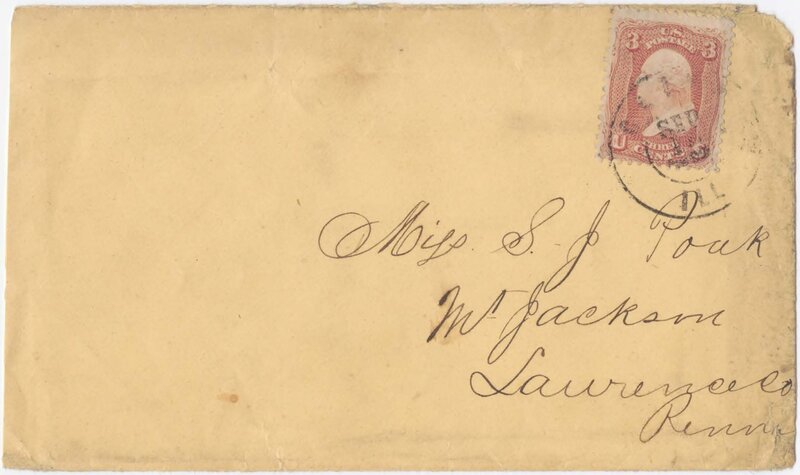 3 U.S. 3
POSTAGE
U THREE
CENTS
SEP
ILL
Miss. S. J Pouk
Mt Jackson
Lawrence Co
Penna